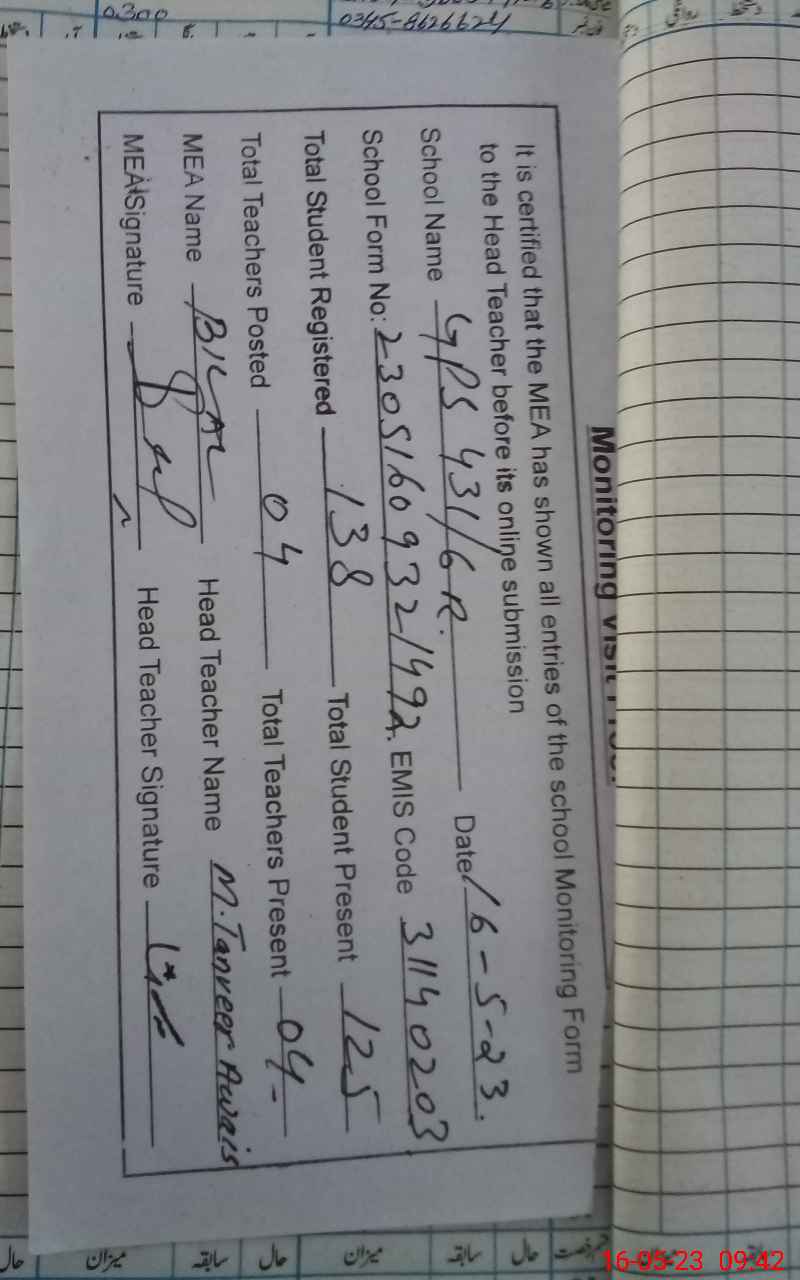 0300
0345-8626624
Monitoring Visit Proof
It is certified that the MEA has shown all entries of the school Monitoring Form
to the Head Teacher before its online submission
School Name GPS 431/6R. Date 16-5-23.
School Form No: 23051609321492. EMIS Code 31140203
Total Student Registered 138 Total Student Present 125
Total Teachers Posted 04 Total Teachers Present 04-
MEA Name BILAL Head Teacher Name M. Tanveer Awais
MEA Signature Head Teacher Signature
16-05-23 09:42